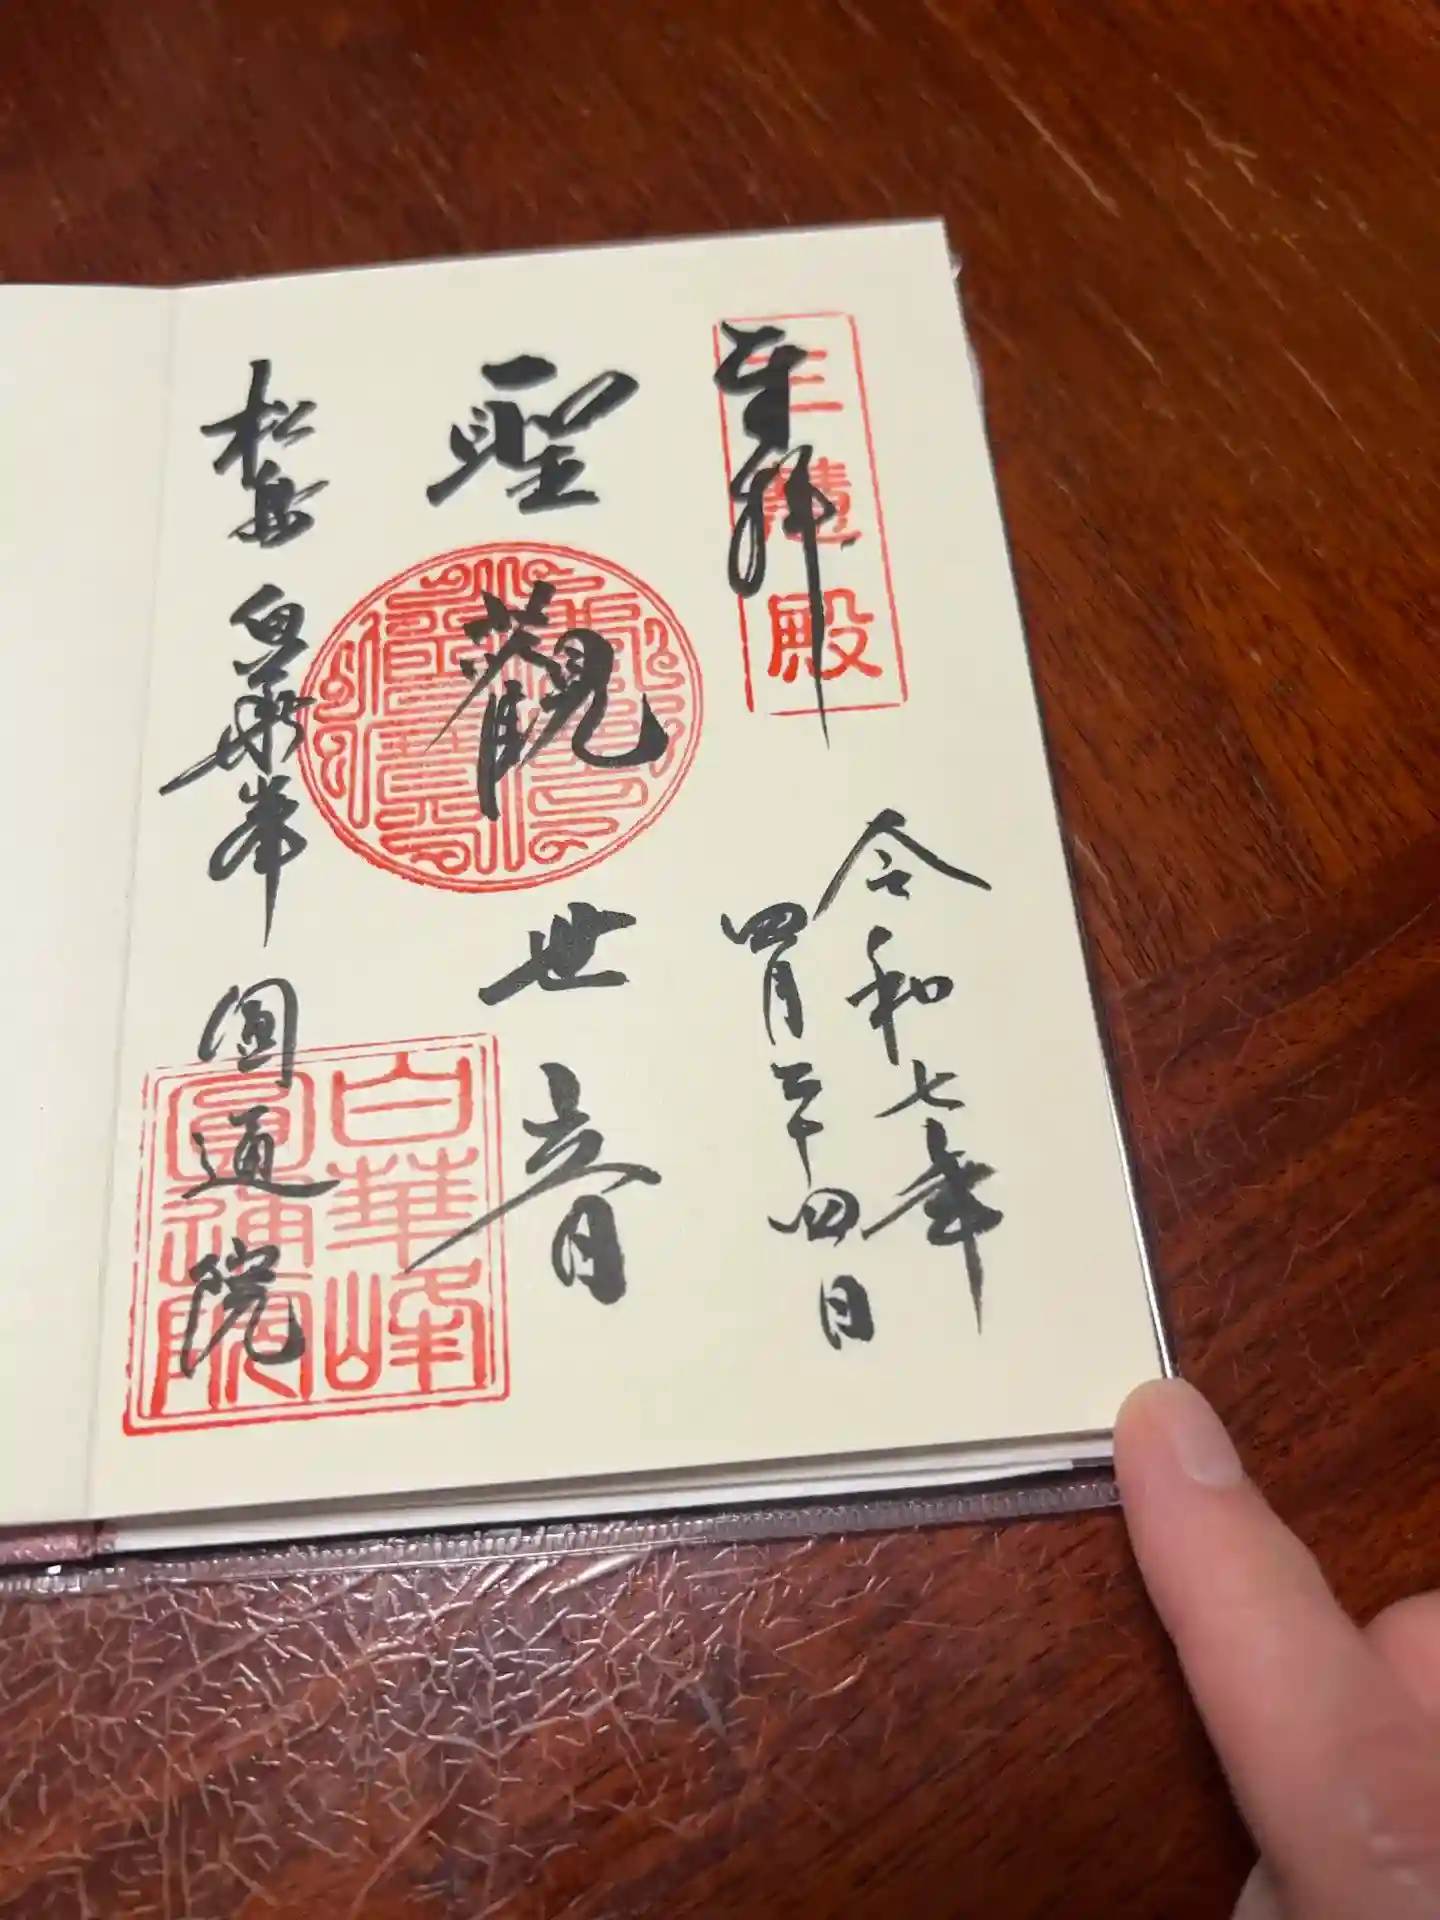 奉拝
三慧殿
令和七年
四月二十四日
聖觀世音
松島 白華峯 圓通院
白華峰
圓通院